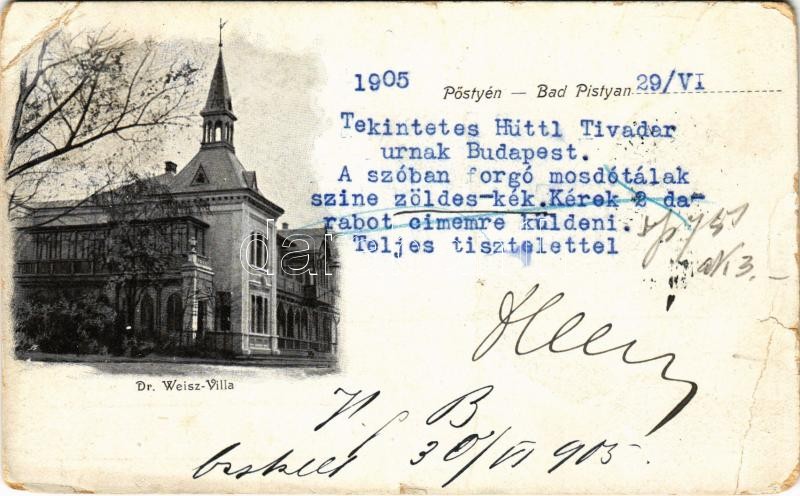 1905 Pőstyén — Bad Pistyan 29/VI
Tekintetes Hüttl Tivadar
urnak Budapest.
A szóban forgó mosdótálak
szine zöldes-kék.Kérek 2 da-
rabot cimemre küldeni.
Teljes tisztelettel
Dr. Weisz-Villa
B
30/VI 905.